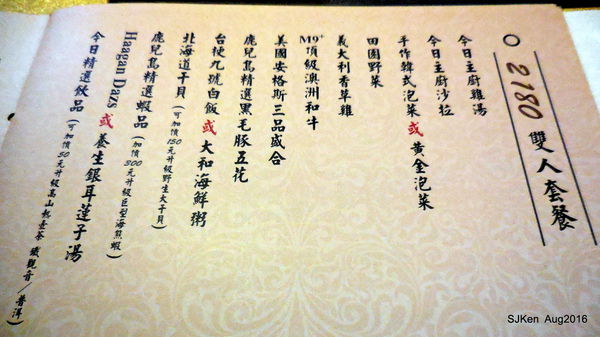 2180 雙人套餐
今日主廚雞湯
今日主廚沙拉
手作韓式泡菜或黃金泡菜
田園野菜
義大利香草雞
M9+頂級澳洲和牛
美國安格斯三品盛合
鹿兒島精選黑毛豚五花
台梗九號白飯 或 大和海鮮粥
北海道干貝(可加價150元升級野生大干貝)
鹿兒島精選蝦品(加價300元升級巨型海熊蝦)
Haagan Dazs 或 養生銀耳蓮子湯
今日精選飲品(可加價50元升級高山熱壺茶 鐵觀音/普洱)
SJKen Aug2016